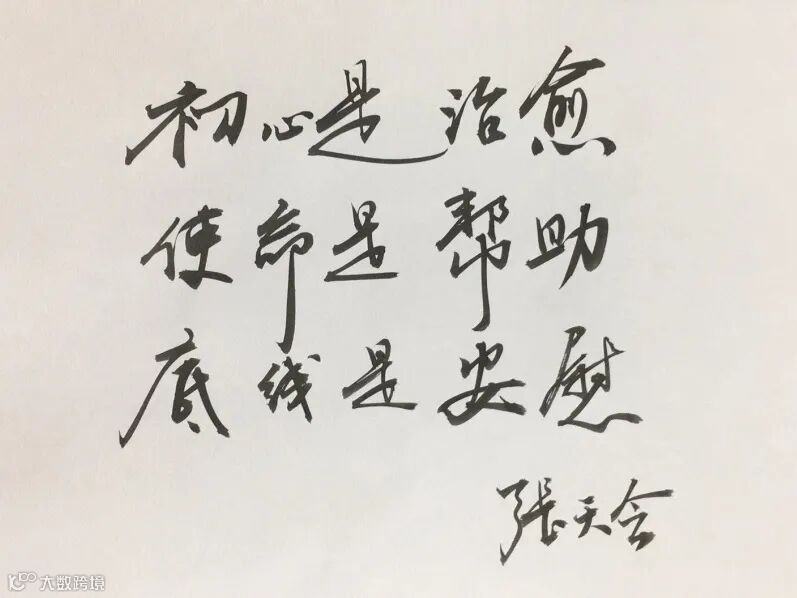 初心是治愈
使命是帮助
底线是安慰
張天会
大数跨境